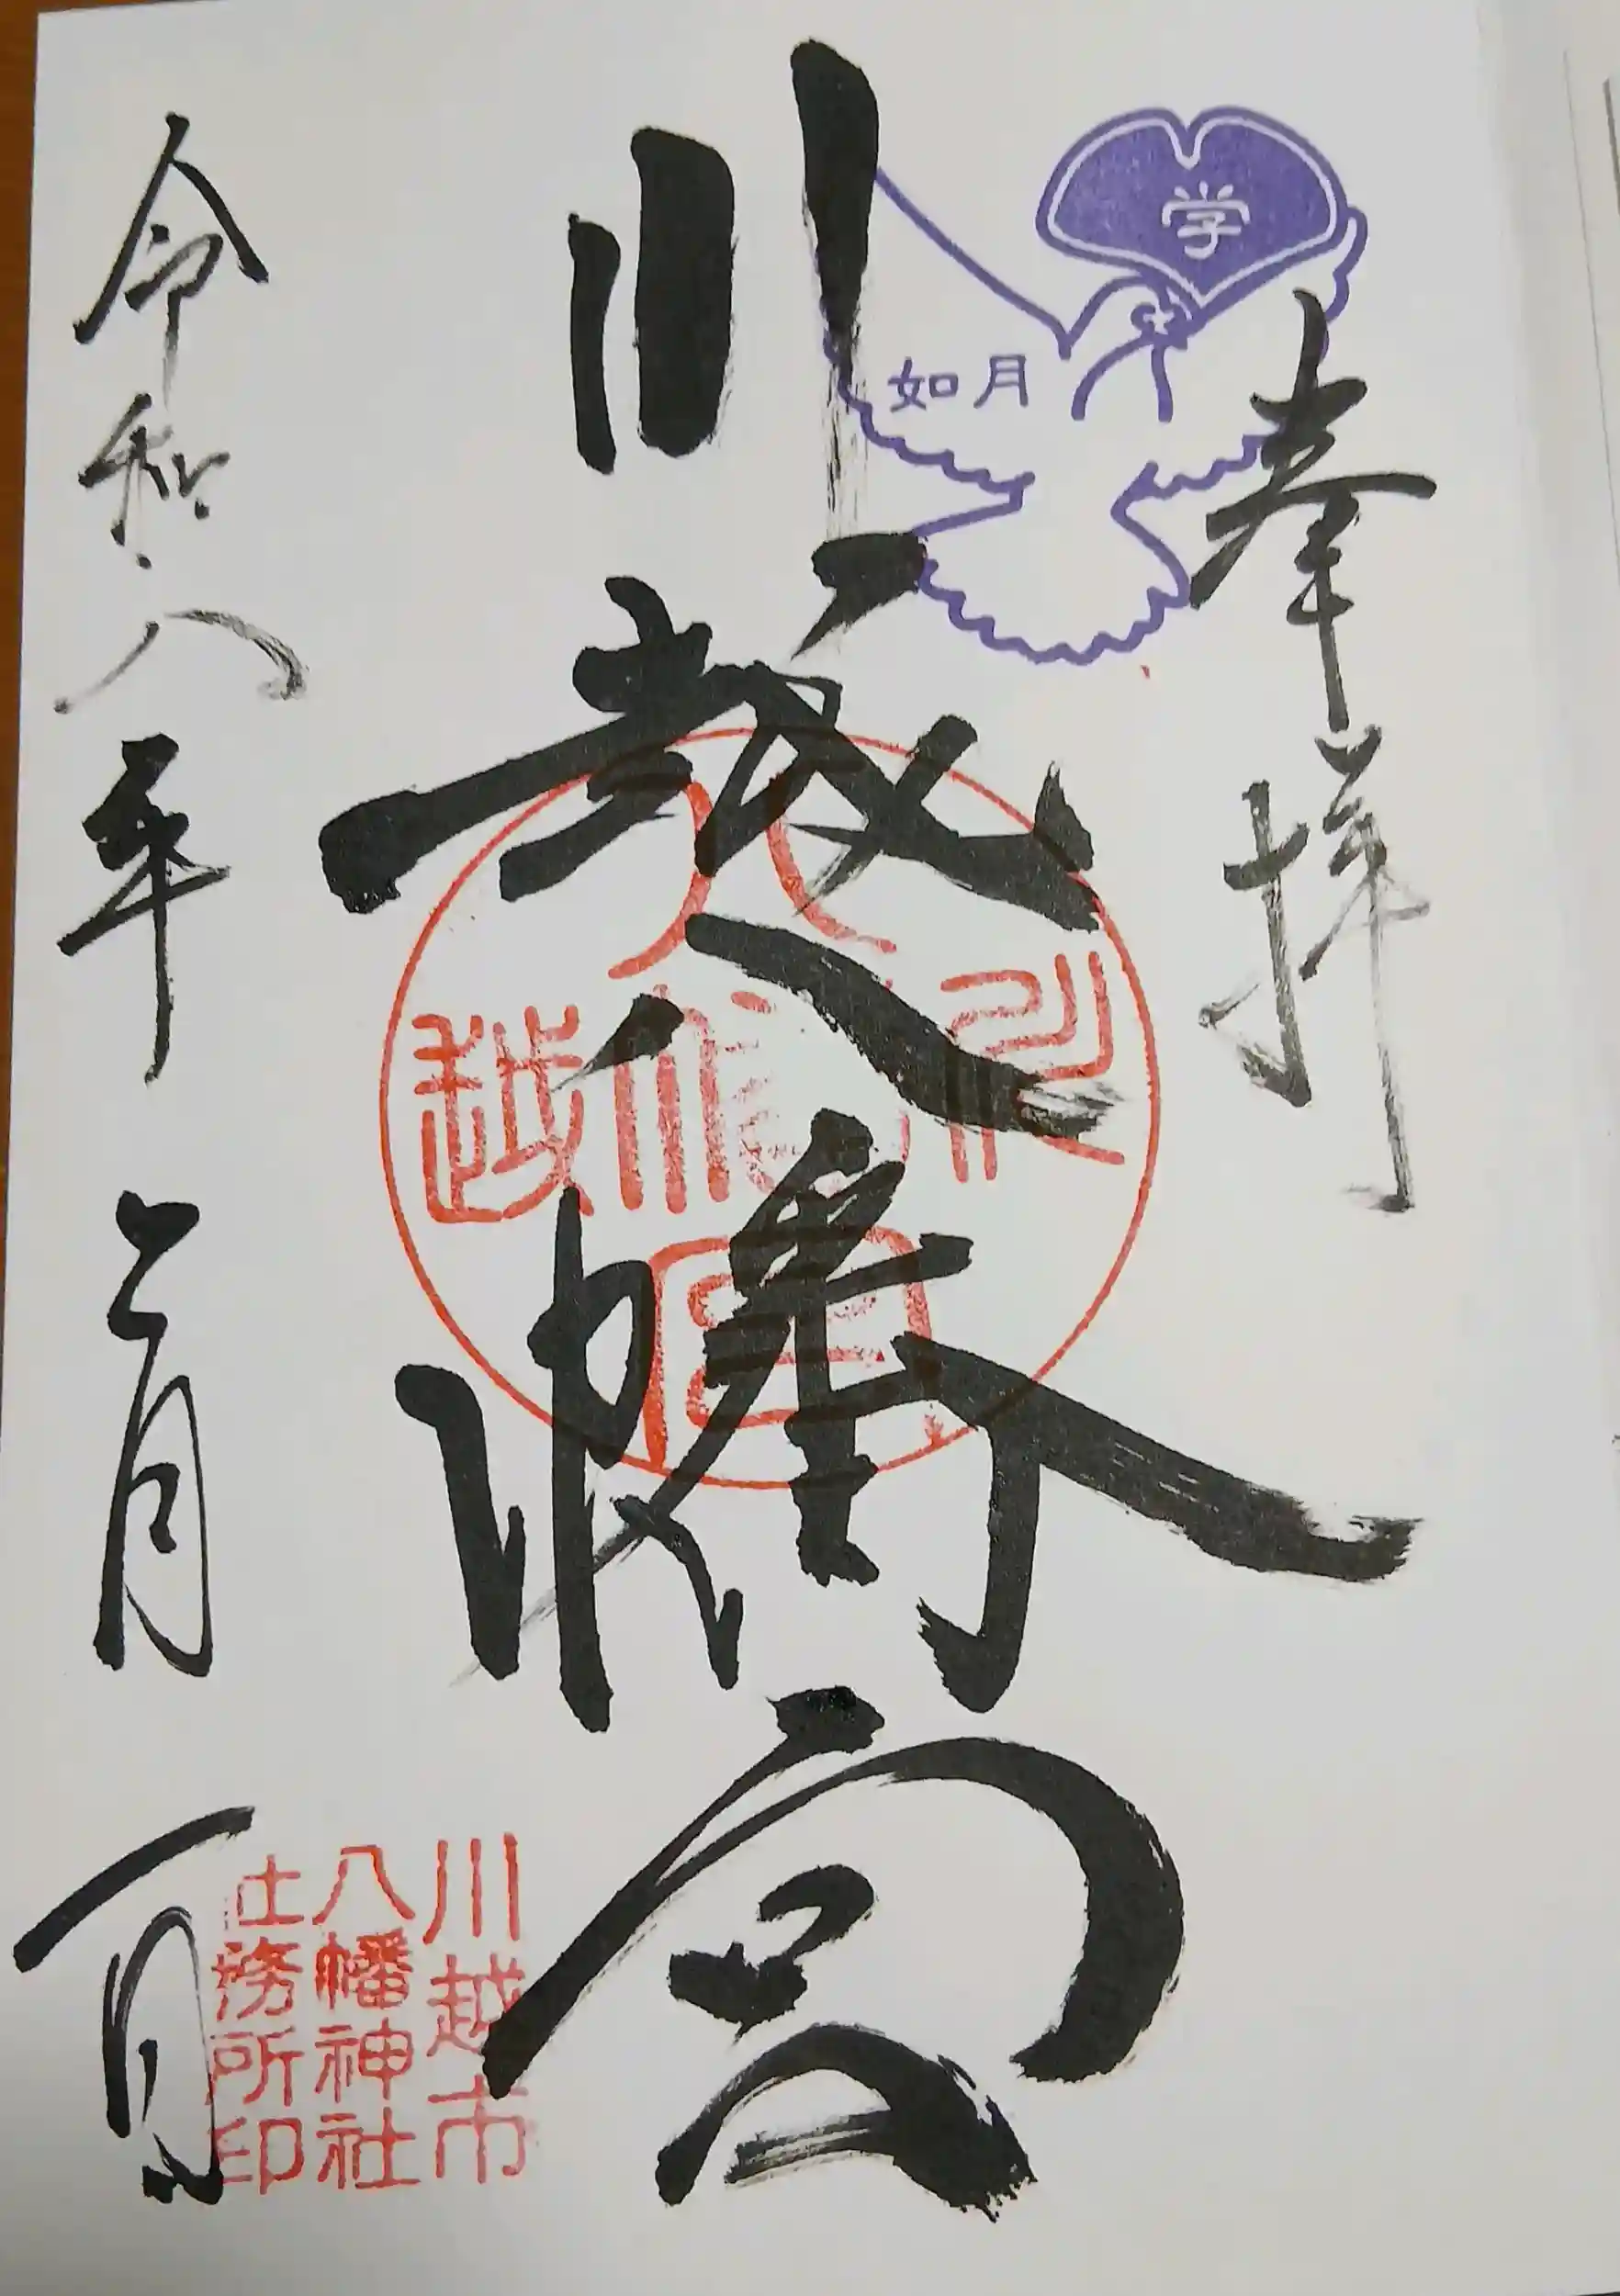 学
如月
奉拝
川越八幡宮
川越市
八幡神社
社務所印
令和八年二月一日